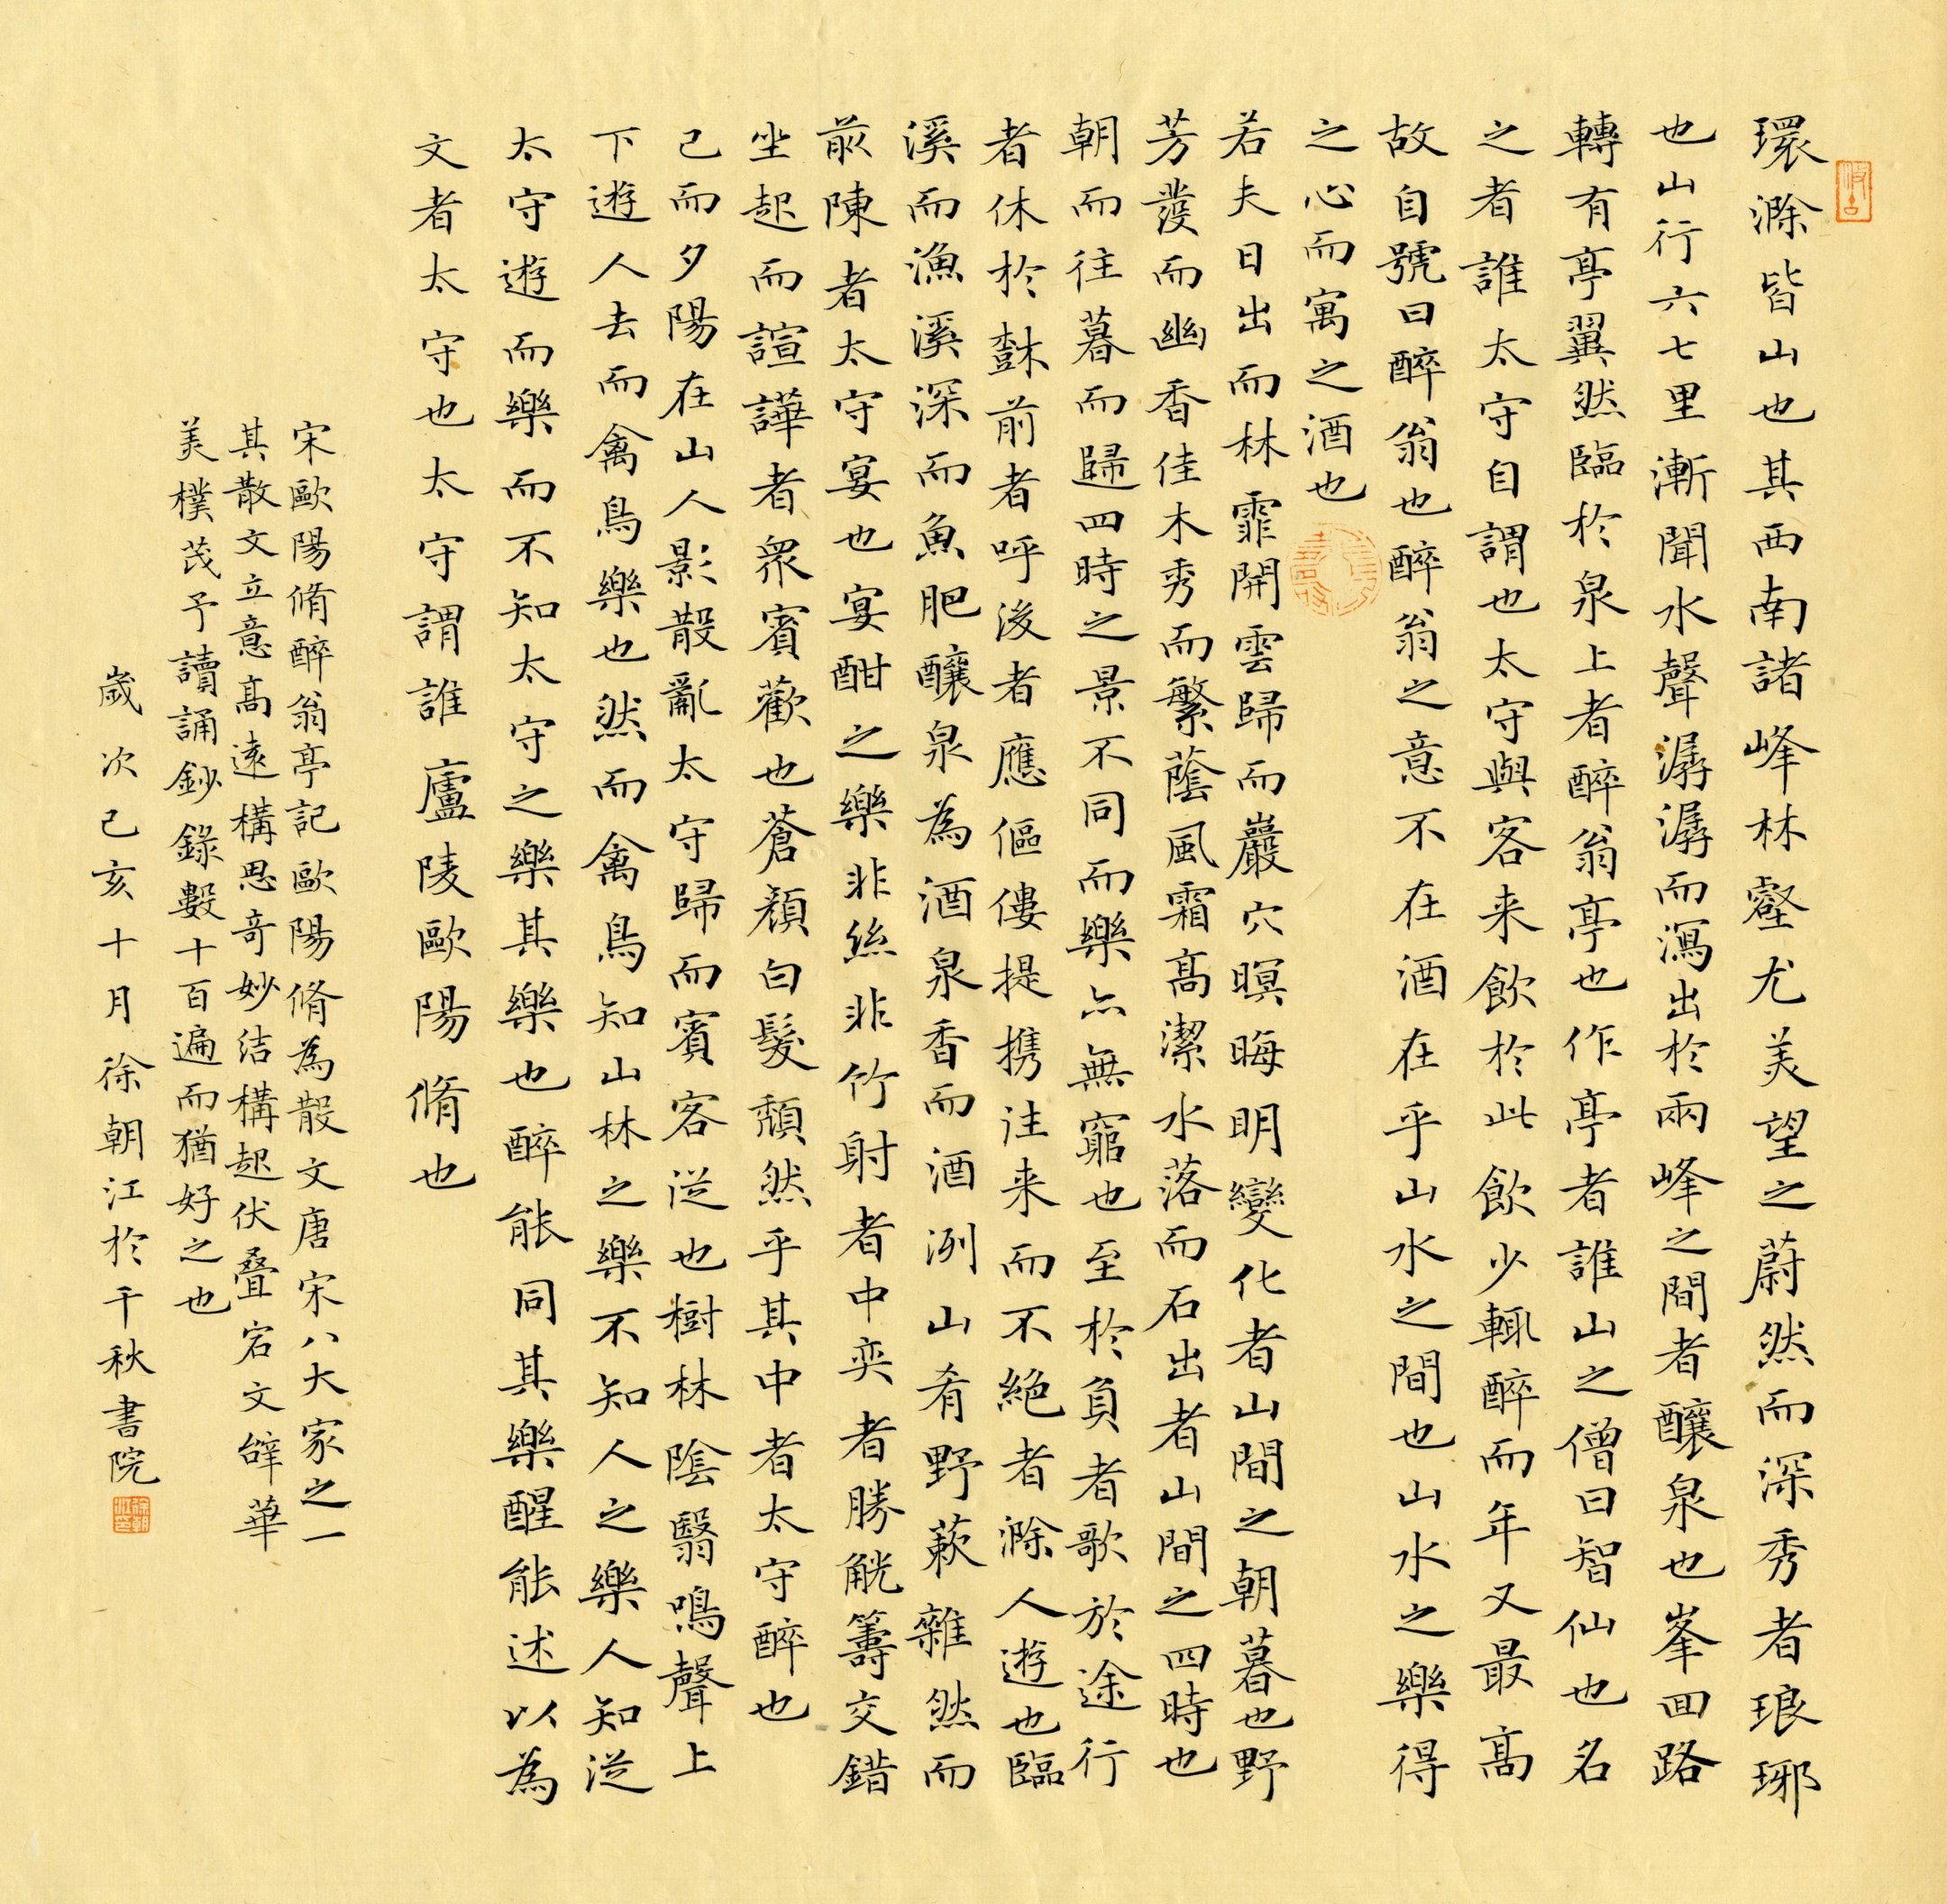 環滁皆山也其西南諸峰林壑尤美望之蔚然而深秀者琅琊
也山行六七里漸聞水聲潺潺而瀉出於兩峰之間者釀泉也峯回路
轉有亭翼然臨於泉上者醉翁亭也作亭者誰山之僧曰智仙也名
之者誰太守自謂也太守與客来飲於此飲少輒醉而年又最高
故自號曰醉翁也醉翁之意不在酒在乎山水之間也山水之樂得
之心而寓之酒也
若夫日出而林霏開雲歸而巖穴暝晦明變化者山間之朝暮也野
芳發而幽香佳木秀而繁蔭風霜高潔水落而石出者山間之四時也
朝而往暮而歸四時之景不同而樂亦無窮也至於負者歌於途行
者休於樹前者呼後者應傴僂提携往来而不絶者滁人遊也臨
溪而漁溪深而魚肥釀泉為酒泉香而酒洌山肴野蔌雜然而
前陳者太守宴也宴酣之樂非絲非竹射者中奕者勝觥籌交錯
坐起而諠譁者衆賓歡也蒼顏白髮頹然乎其中者太守醉也
已而夕陽在山人影散亂太守歸而賓客從也樹林陰翳鳴聲上
下遊人去而禽鳥樂也然而禽鳥知山林之樂不知人之樂人知從
太守遊而樂而不知太守之樂其樂也醉能同其樂醒能述以為
文者太守也太守謂誰廬陵歐陽脩也
宋歐陽脩醉翁亭記歐陽脩為散文唐宋八大家之一
其散文立意高遠構思奇妙结構起伏叠宕文辭華
美樸茂予讀誦鈔錄數十百遍而猶好之也
歲次己亥十月徐朝江於千秋書院
徐朝江印